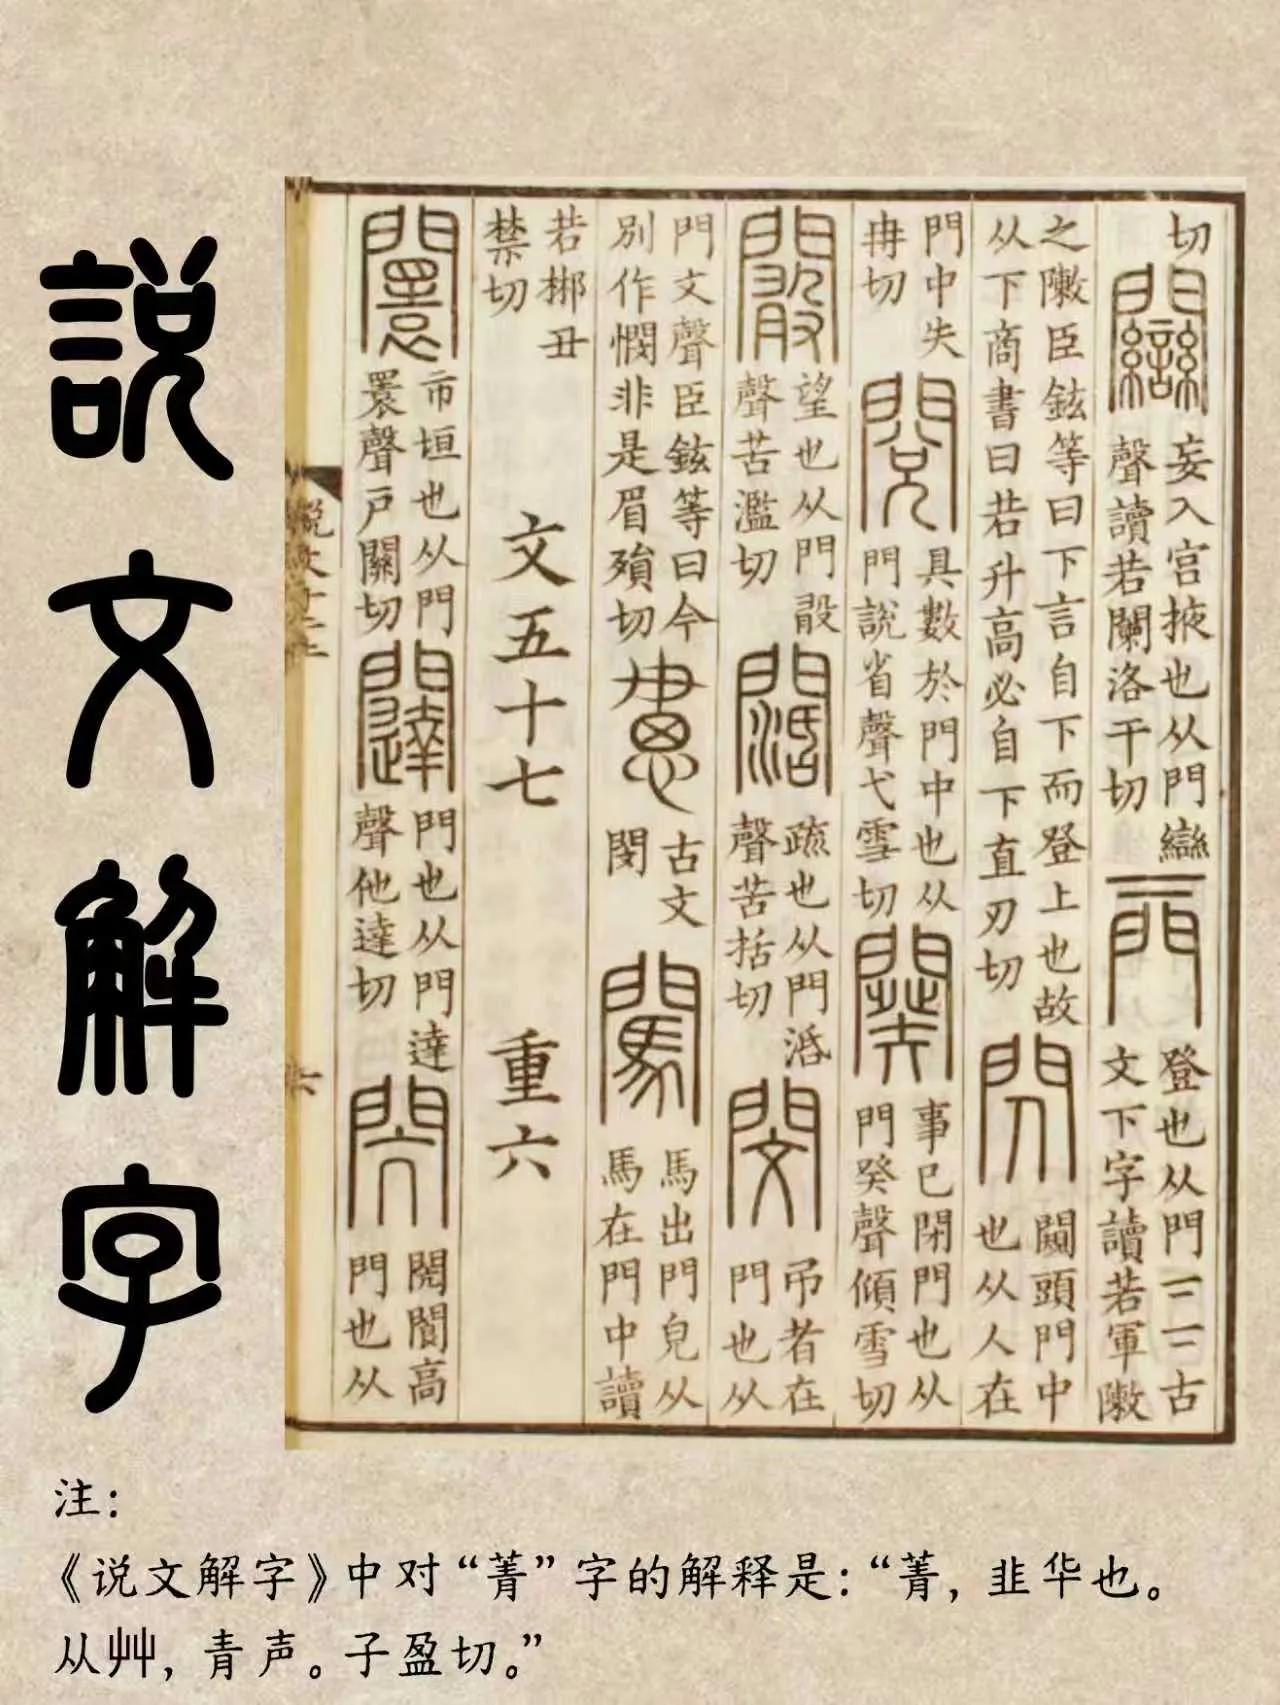 說文解字
切 闌 妄入宮掖也从門䜌聲讀若闌洛干切 𨳌 登也从門二二古文下字讀若軍敶
之敶臣鉉等曰下言自下而登上也故从下商書曰若升高必自下直刃切 閃 闚頭門中也从人在
門中失冉切 閱 具數於門中也从門說省聲弋雪切 闋 事已閉門也从門癸聲傾雪切
闞 望也从門敢聲苦濫切 闊 疏也从門活聲苦括切 閔 吊者在門也从
門文聲臣鉉等曰今別作憫非是眉殞切 古文閔 闖 馬出門皃从馬在門中讀
若郴丑禁切 文五十七 重六
闤 市垣也从門睘聲戶關切 闥 門也从門達聲他達切 閌 閌閬高門也从
說文十二上 六
注：
《说文解字》中对“菁”字的解释是：“菁，韭华也。
从艸，青声。子盈切。”